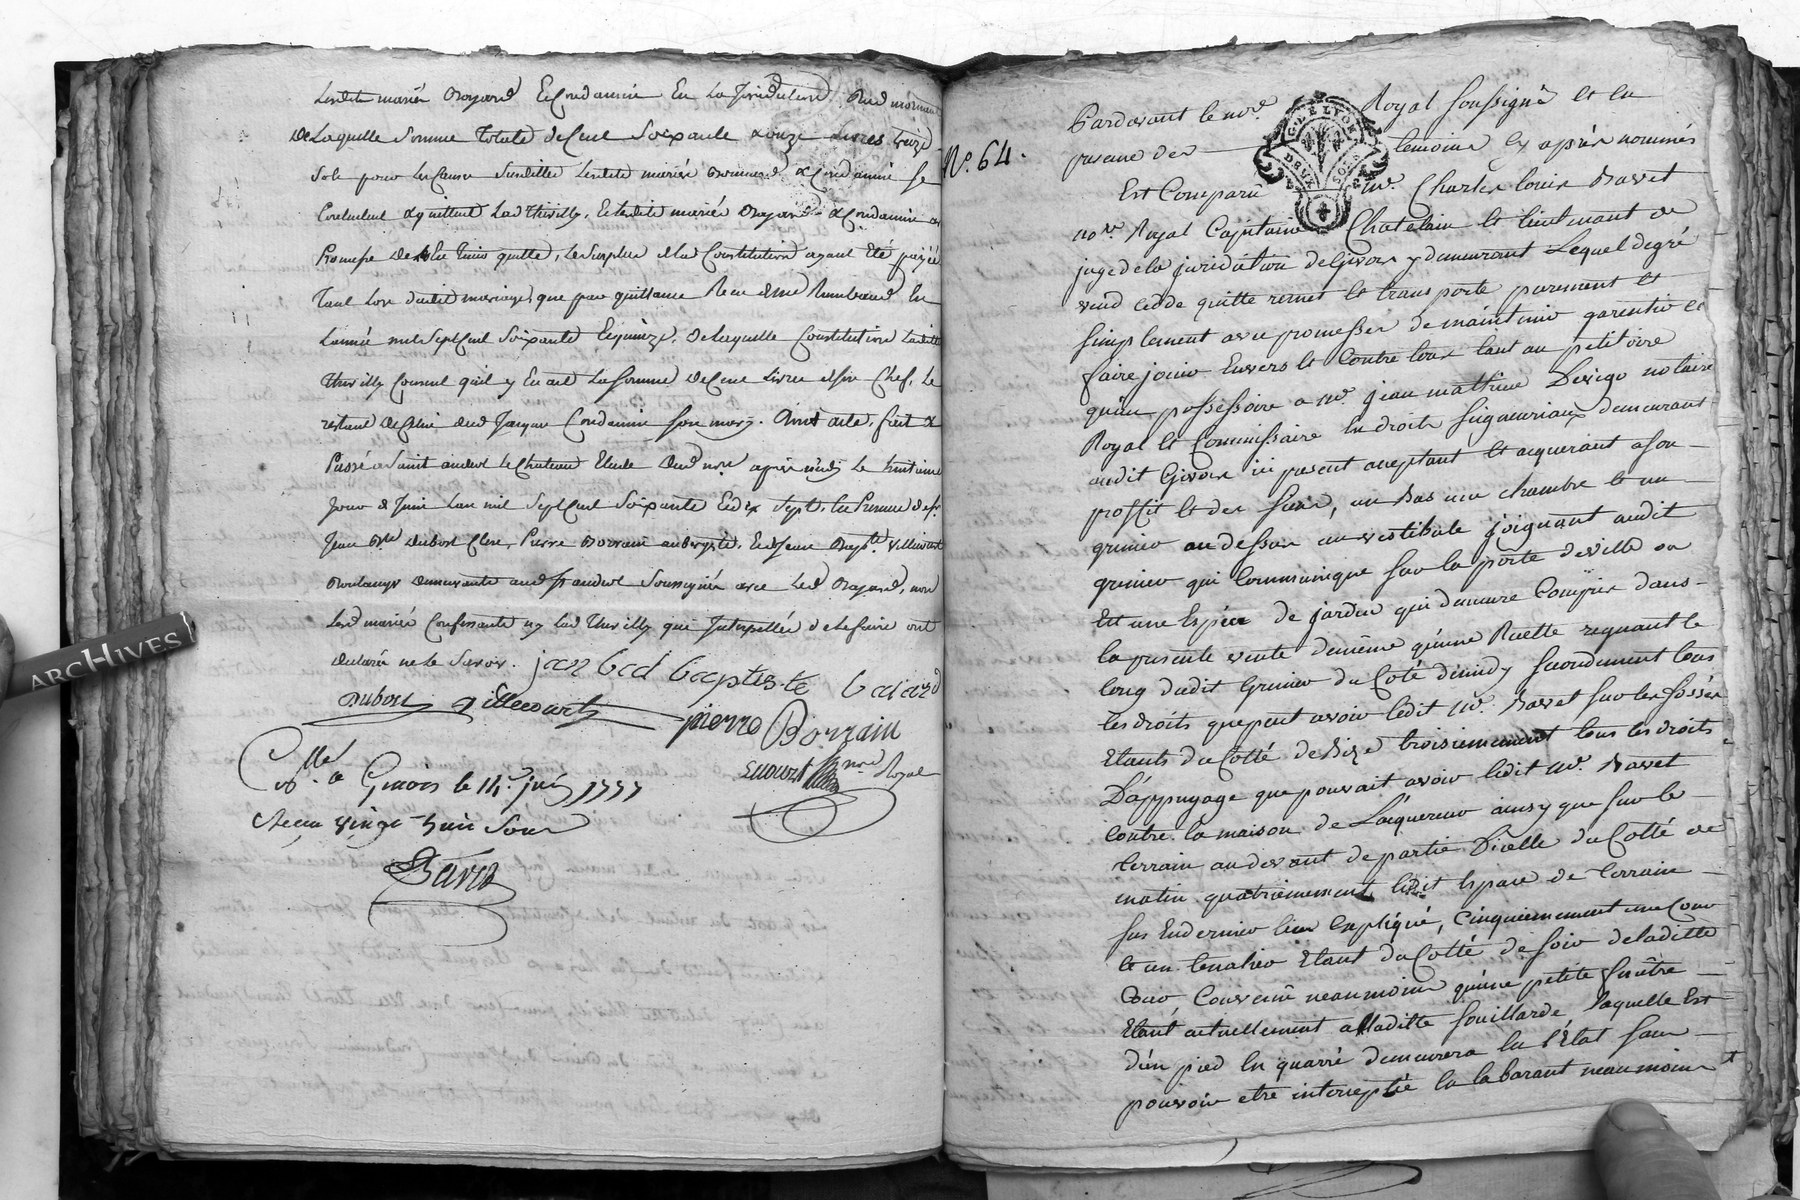 Lesdits mariés Bayard & Condamin En La Juridiction dud mornant
De Laquelle Somme totale de Cent Soixante douze Livres treize
Sols pour les Causes Susdittes Lesdits mariés & Condamin se
Contentent quittent Lad thevilly, & lesdits mariés Bayard & Condamin
Promesse de plus tenir quitte, Le Surplus de la Constitution ayant été payée
Tant Lors dudit mariage, que par quittance Reçue dud me En
L'année mil Sept Cent Soixante & quinze, de Laquelle Constitution Laditte
thevilly Convient qu'il y En ait La Somme de Cent Livres de son Chef, Le
restant de Celui dud Jacques Condamin son mary. Dont acte, fait &
Passé a Saint andéol Le Chateau Etude dud nore après midy Le huitieme
Jour de Juin L'an mil Sept Cent Soixante & dix Sept, En Presence de sr
Jean Bte Dubost Clerc, Pierre Borrain aubergiste, & de Jean Bapte Villecourt
Boulanger demeurants aud st andéol Soussignés avec Led Bayard, non
Lesd mariés Condamin ny Lad thevilly qui Interpellés de le faire ont
déclaré ne le Savoir. jan bad baptis-te baiard
Dubost Villecourt pierre Borrain
nore Royal
Collé a Givors le 14. juin 1777
Reçu vingt huit Sous
Bavet
No. 64.
G. DE LYON
DEUX SOLS
Pardevant le nore Royal soussigné et en
presence des temoins cy après nommés
Est Comparu Me. Charles louis Bavet
nore. Royal Capitaine Chatelain et lieutenant de
juge de la juridiction de Givors y demeurant Lequel de gré
vend cedde quitte remet et transporte purement et
simplement avec promesses de maintenir garentir et
faire jouir Envers et Contre tous tant au petitoire
qu'au possessoire a Me. jean mathieu Devigo notaire
Royal et Commissaire En droits seigneuriaux demeurant
audit Givors ici present acceptant et acquerant a son
proffit et des siens, un Bas une chambre et un
grenier au dessus un vestibule joignant audit
grenier qui communique sur la porte de ville ou
Est une Espece de jardin qui demeure Compris dans
la presente vente demême qu'une Ruette regnant le
long dudit Grenier du Coté de midy secondement tous
les droits que peut avoir ledit Me. Bavet sur les fossés
Etants du Cotté de Bize troisiemement tous les droits
D'appuyage que pouvait avoir ledit Me. Bavet
contre la maison de L'acquereur ainsy que sur le
terrain au devant de partie D'icelle du Cotté de
matin quatriemement ledit Espace de terrain
sus En dernier lieu Expliqué, Cinquiemement une Cour
et un tenalier Etant du Cotté de soir de laditte
Cour Convenu neanmoins qu'une petite fenêtre
Etant actuellement a laditte souillarde, laquelle Est
d'un pied En quarré demeurera En l'Etat sans
pouvoir etre interceptée En labarant neanmoins
ARCHIVES